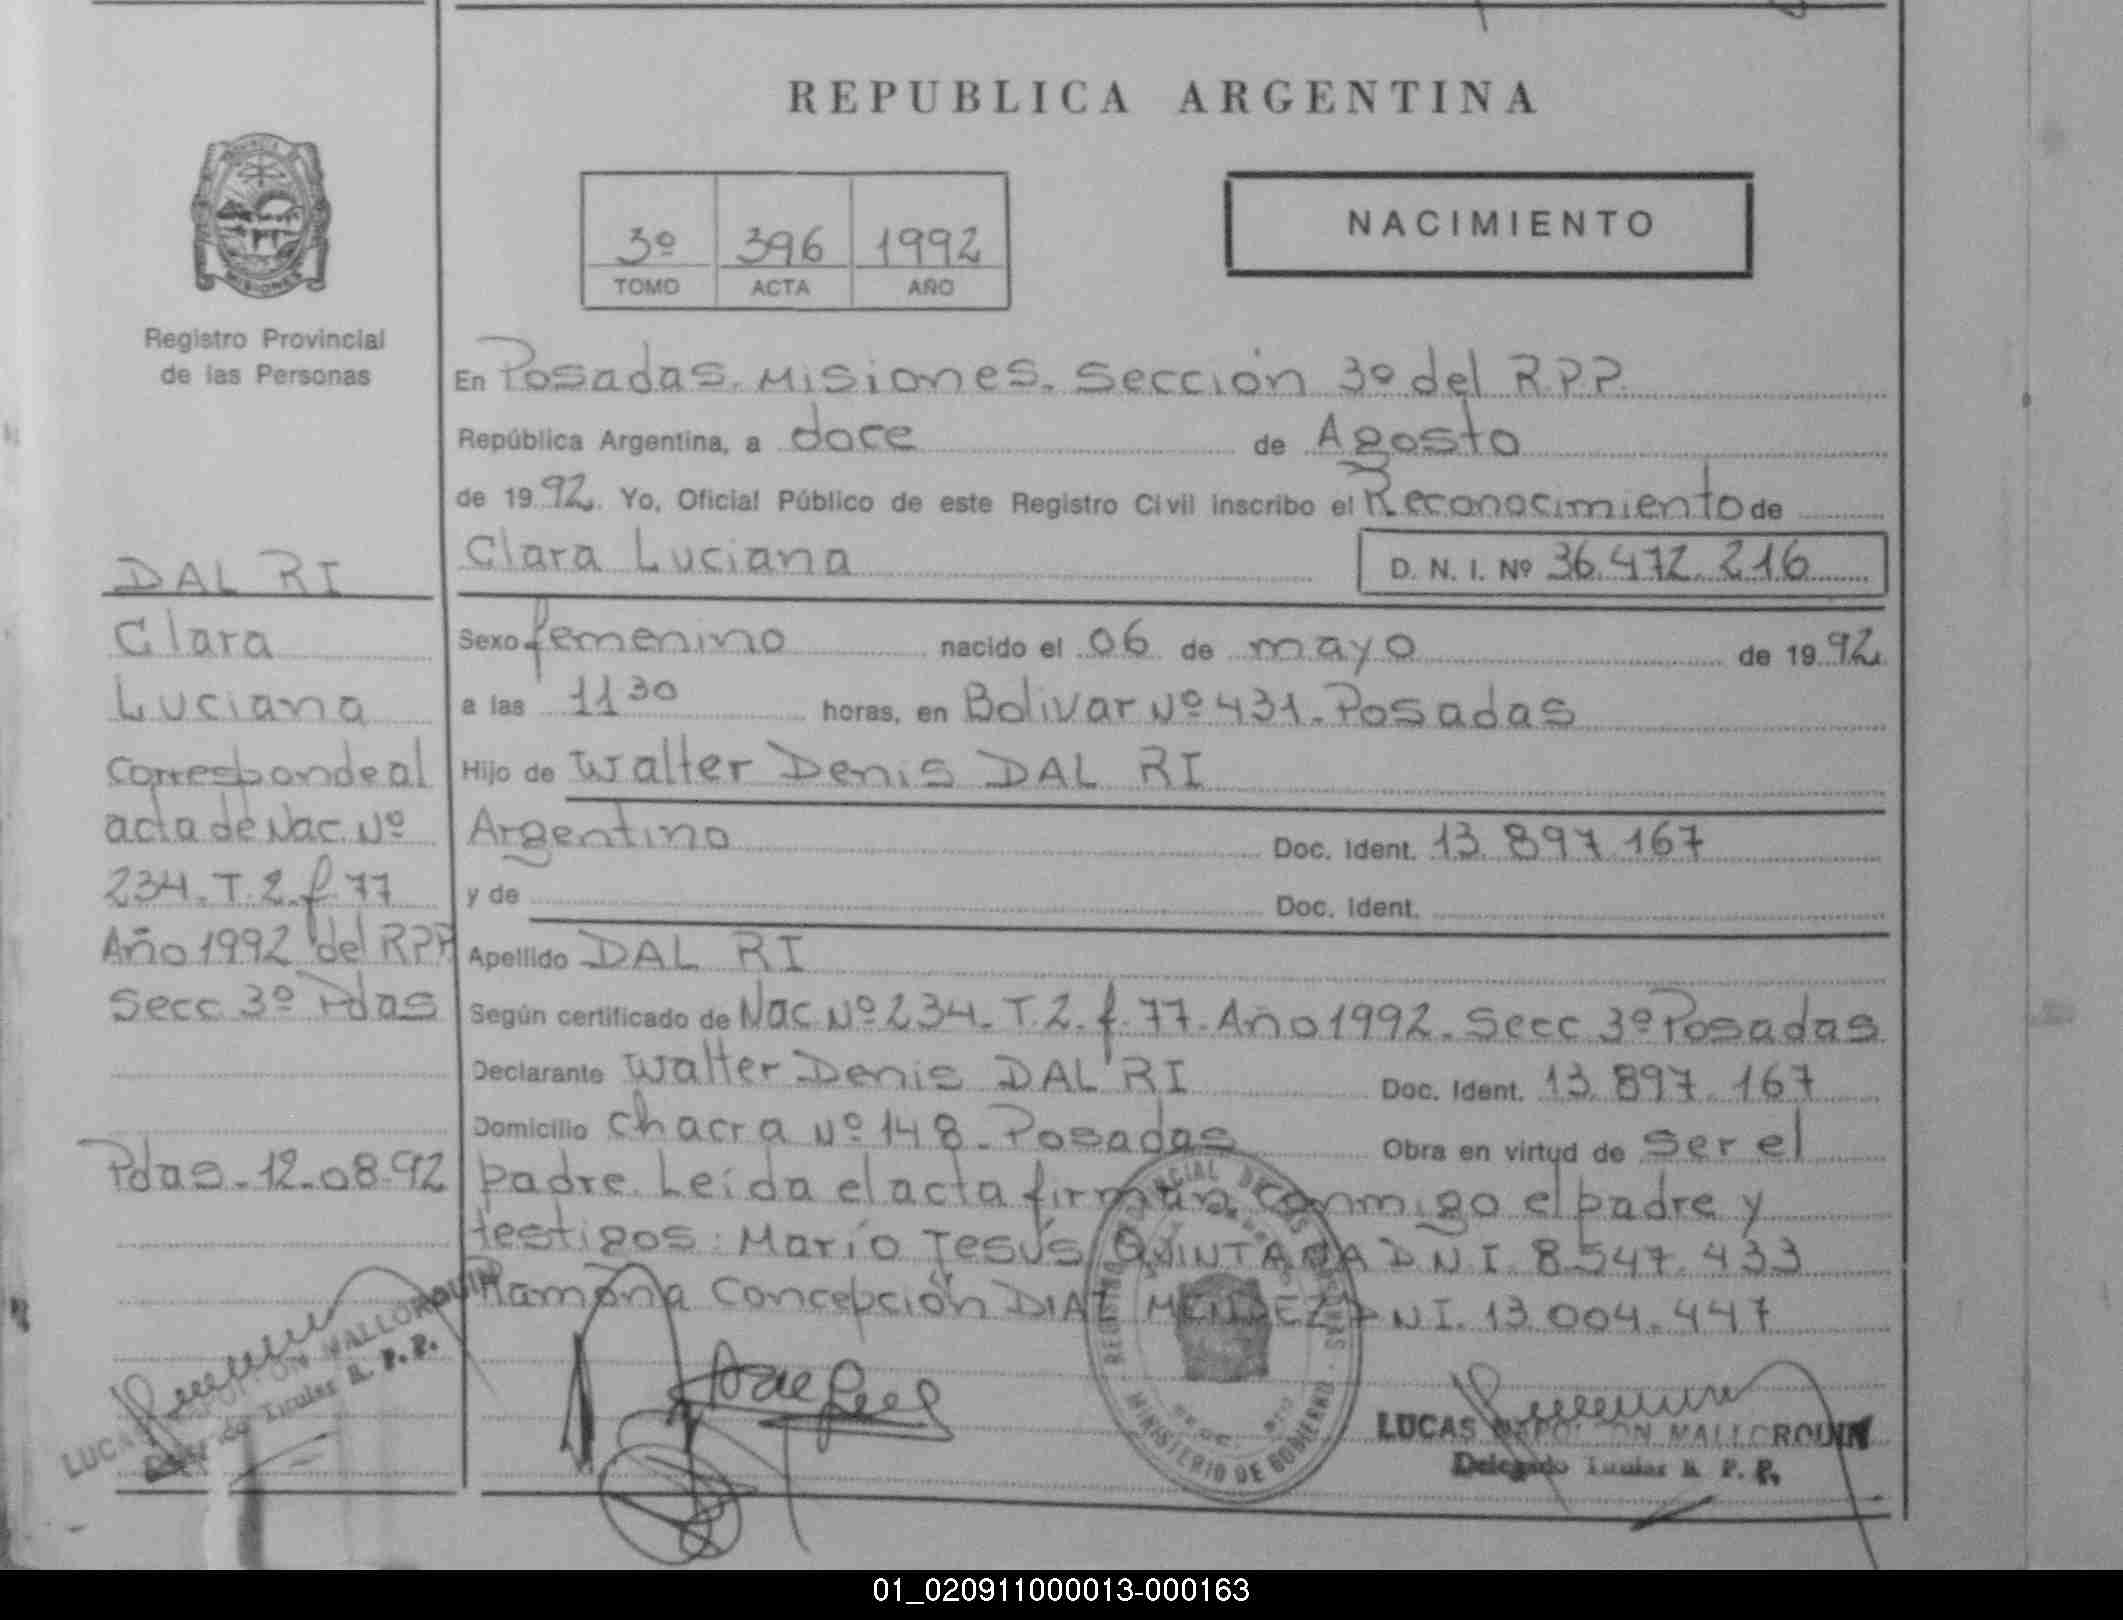 REPUBLICA ARGENTINA
3º 396 1992
TOMO ACTA AÑO
NACIMIENTO
Registro Provincial
de las Personas
DAL RI
Clara
Luciana
Corresponde al
acta de Nac. Nº
234. T. 2. f. 77
Año 1992 del RPP
Secc 3º Pdas
Pdas. 12.08.92
LUCAS MALLORQUIN
Titular R. P. P.
En Posadas. Misiones. Sección 3º del R.P.P.
República Argentina, a doce de Agosto
de 1992. Yo, Oficial Público de este Registro Civil inscribo el Reconocimiento de
Clara Luciana D. N. I. Nº 36.472.216
Sexo femenino nacido el 06 de mayo de 1992
a las 11 30 horas, en Bolivar Nº 431. Posadas
Hijo de Walter Denis DAL RI
Argentino Doc. Ident. 13.897.167
y de Doc. Ident.
Apellido DAL RI
Según certificado de Nac. Nº 234. T. 2. f. 77. Año 1992. Secc 3º Posadas
Declarante Walter Denis DAL RI Doc. Ident. 13.897.167
Domicilio Chacra Nº 148. Posadas Obra en virtud de ser el
padre. Leída el acta firman conmigo el padre y
testigos: Mario Jesús QUINTANA D N I. 8.547.433
Ramona Concepción DIAZ MENDEZ D N I. 13.004.447
MINISTERIO DE GOBIERNO
LUCAS NAPOLEON MALLORQUIN
Delegado Titular R. P. P.
01_020911000013-000163